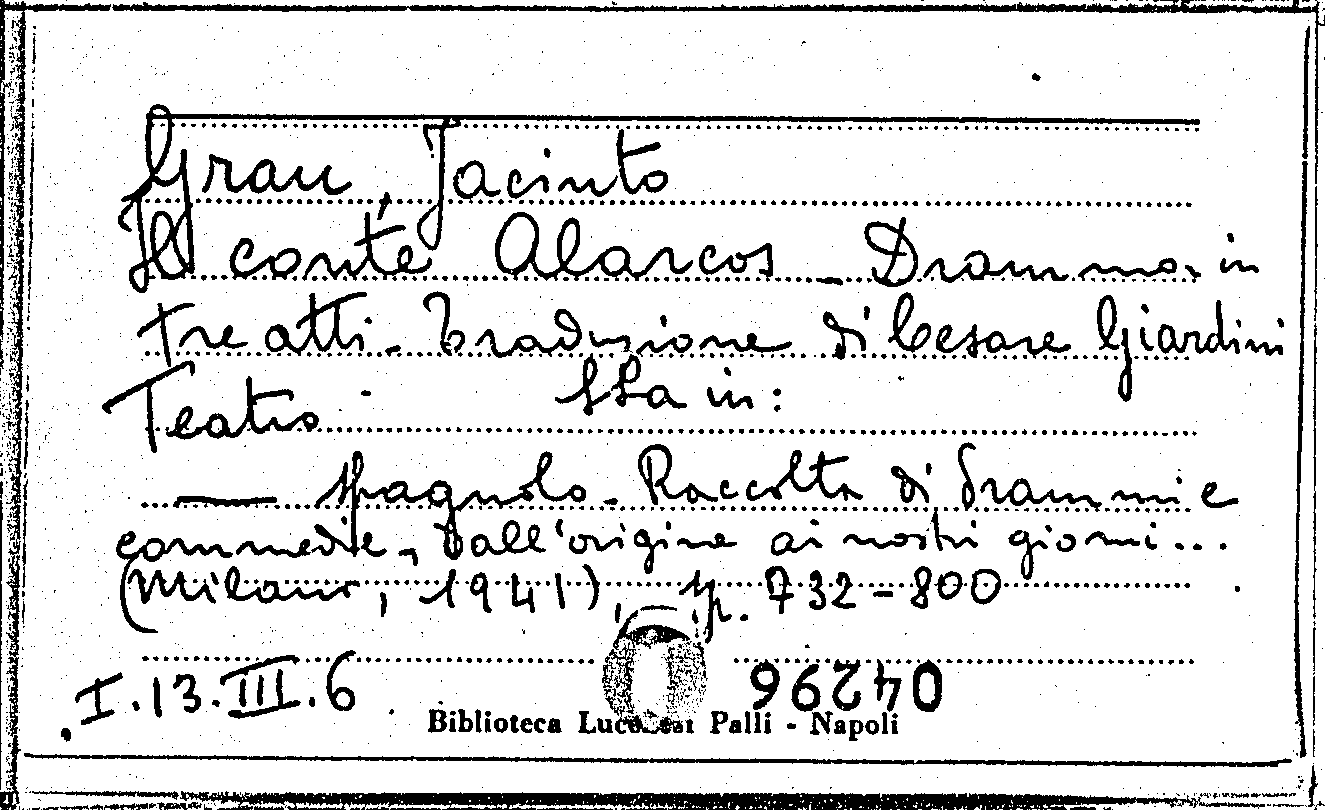 Grau, Jacinto
Il conte Alarcos - Dramma in
tre atti - Traduzione di Cesare Giardini
Sta in:
Teatro
— Spagnolo - Raccolta di drammi e
commedie, dall'origine ai nostri giorni...
(Milano, 1941), p. 732-800
I.13.III.6
04296
Biblioteca Palli - Napoli